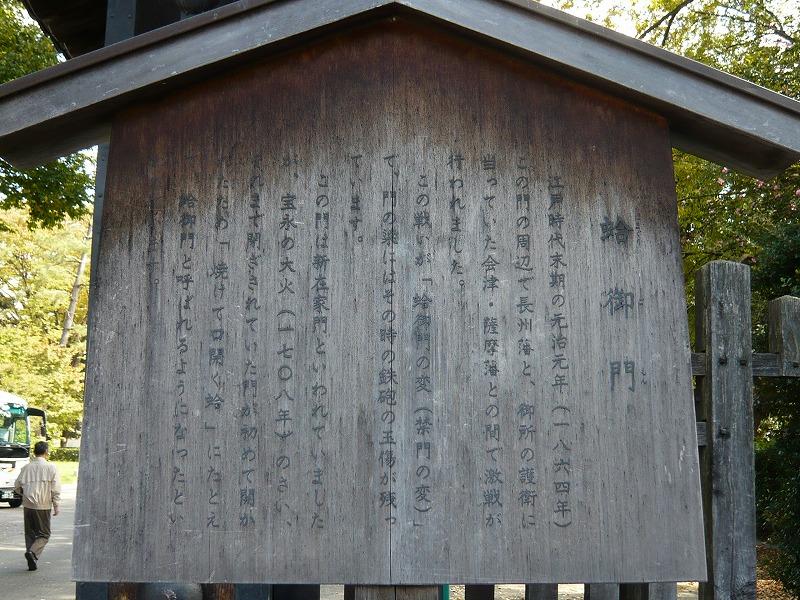 蛤御門
江戸時代末期の元治元年(一八六四年)
この門の周辺で長州藩と、御所の護衛に
当っていた会津・薩摩藩との間で激戦が
行われました。
この戦いが「蛤御門の変(禁門の変)」
で、門の梁にはその時の鉄砲の玉傷が残っ
ています。
この門は新在家門といわれていました
が、宝永の大火(一七〇八年)のさい、
それまで閉ざされていた門が初めて開か
れたため「焼けて口開く蛤」にたとえ
蛤御門と呼ばれるようになったとい
ます。